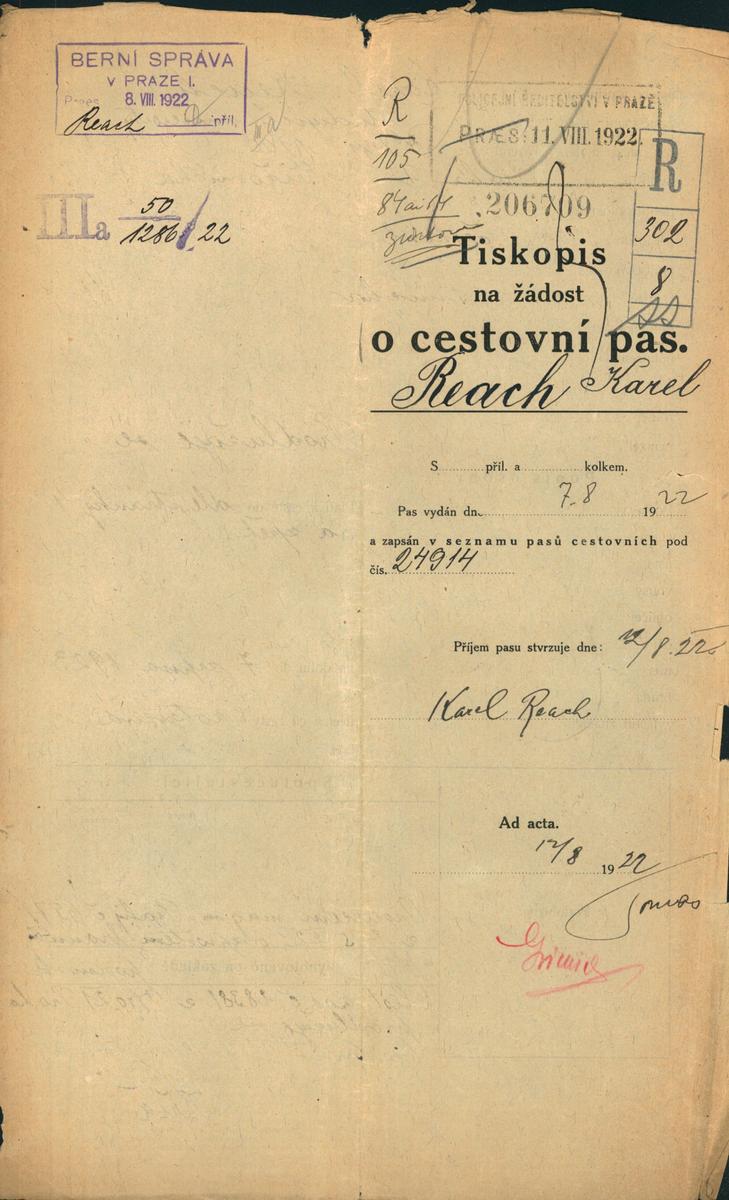 BERNÍ SPRÁVA
V PRAZE I.
Praes. 8. VIII. 1922
Reach příl.
IIIa 50
1286/22
R
105
POLICEJNÍ ŘEDITELSTVÍ V PRAZE
PRAES: 11. VIII. 1922
206709
R
302
8
Tiskopis
na žádost
o cestovní pas.
Reach Karel
S příl. a kolkem.
Pas vydán dne 7.8 1922
a zapsán v seznamu pasů cestovních pod
čís. 24914
Příjem pasu stvrzuje dne: 12/8.22
Karel Reach
Ad acta.
12/8 1922